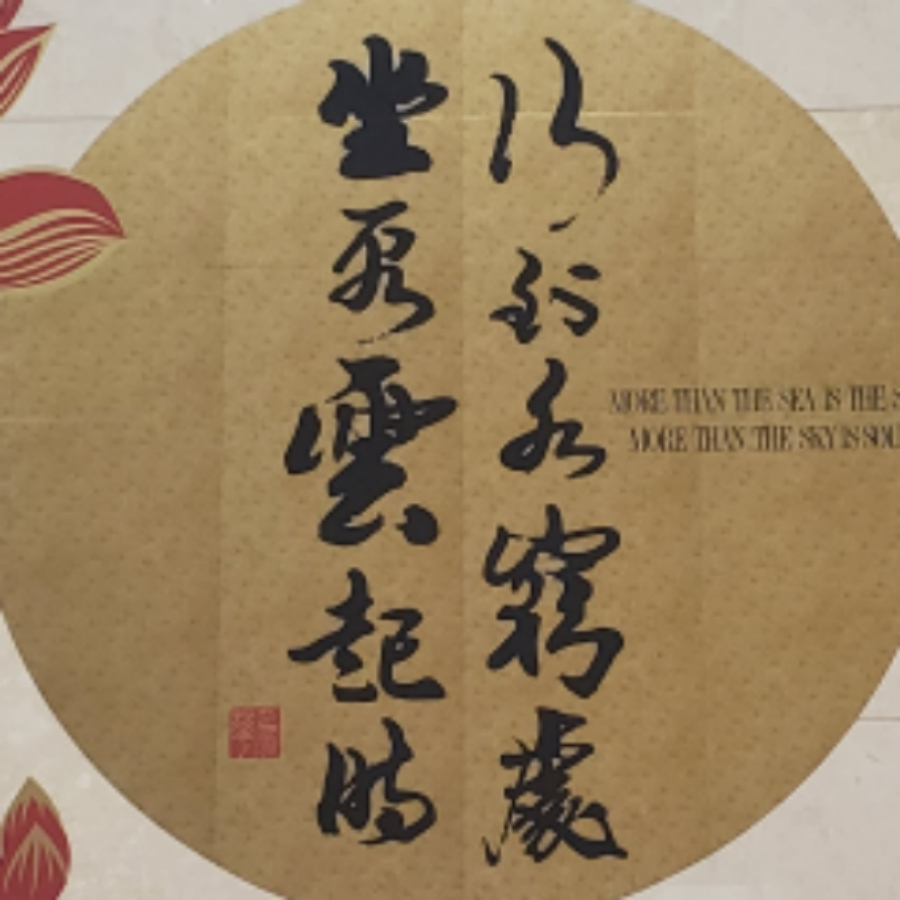 行到水窮處
坐看雲起時
MORE THAN THE SEA IS THE
MORE THAN THE SKY IS SOU